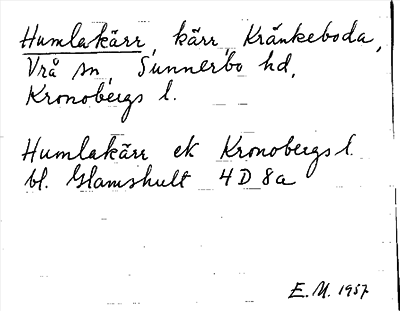 Humlakärr, kärr, Kränkeboda,
Vrå sn, Sunnerbo hd,
Kronobergs l.
Humlakärr ek Kronobergs l.
bl. Glamshult 4D 8a
E.M. 1957